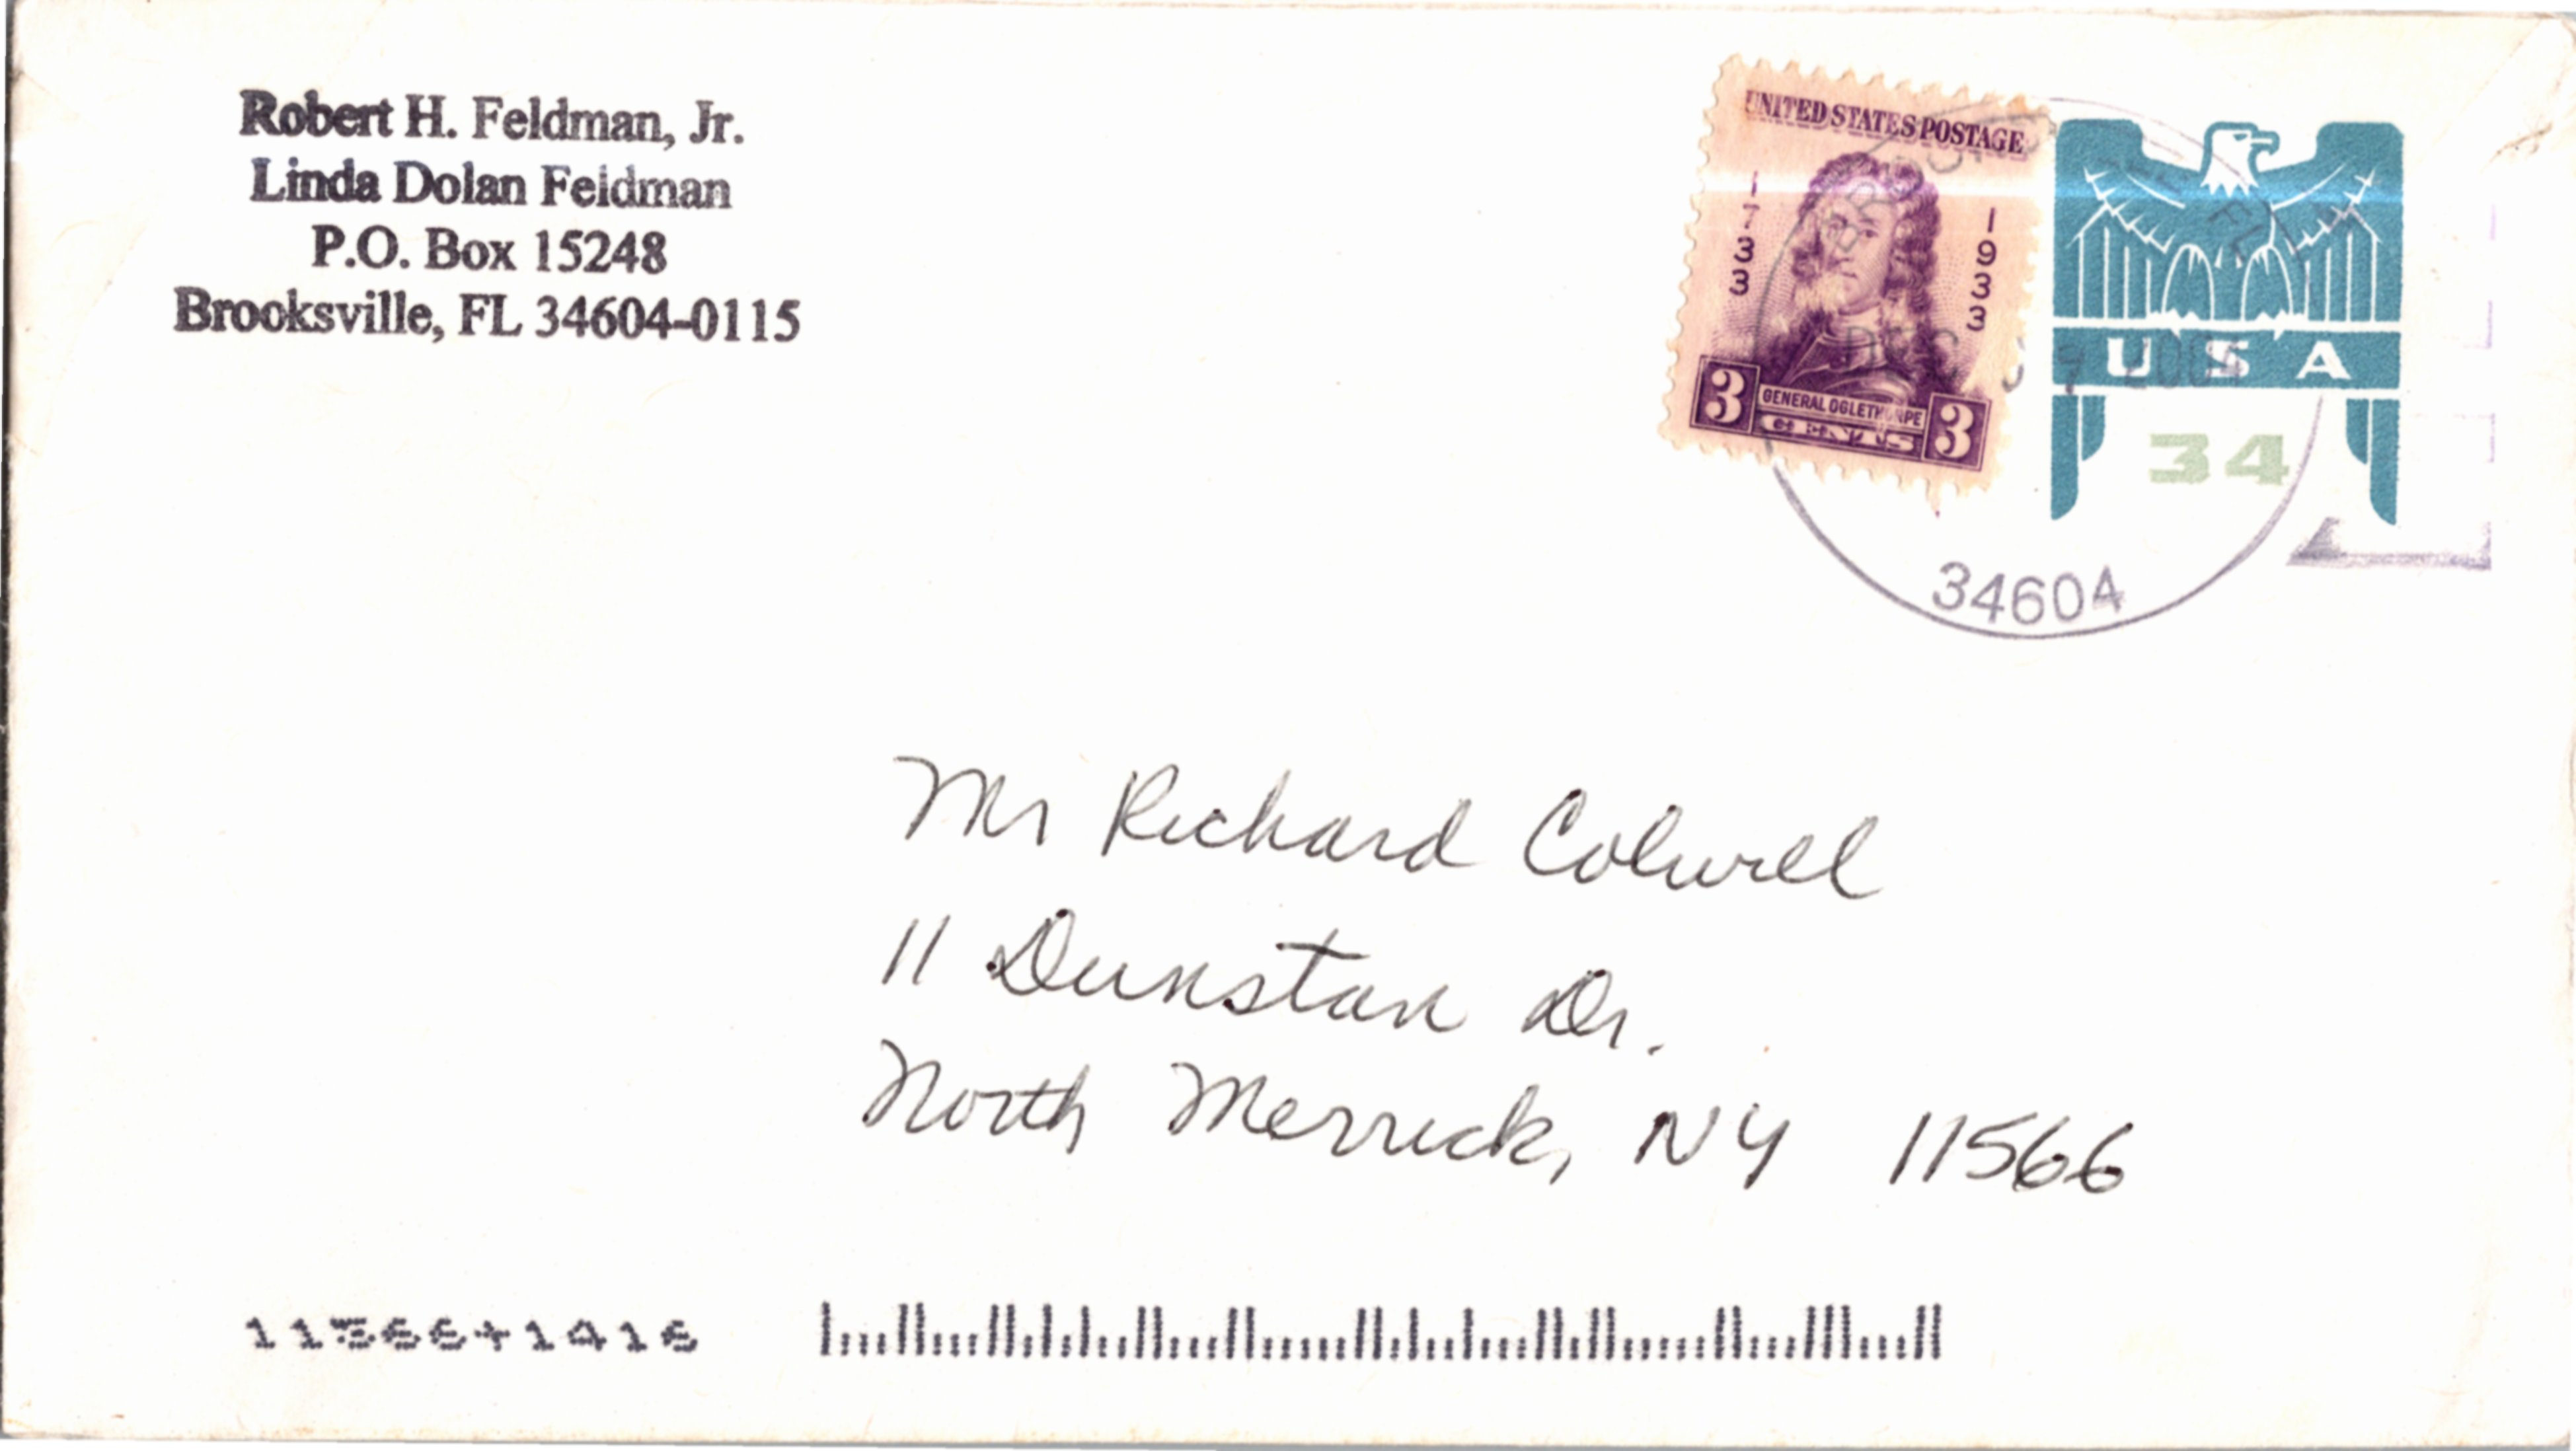 Robert H. Feldman, Jr.
Linda Dolan Feldman
P.O. Box 15248
Brooksville, FL 34604-0115
UNITED STATES POSTAGE
1733
1933
3 GENERAL OGLETHORPE 3
CENTS
USA
34
BROOKSVILLE FL
DEC 07
34604
Mr Richard Colwell
11 Dunstan Dr.
North Merrick, NY 11566
11566+1416